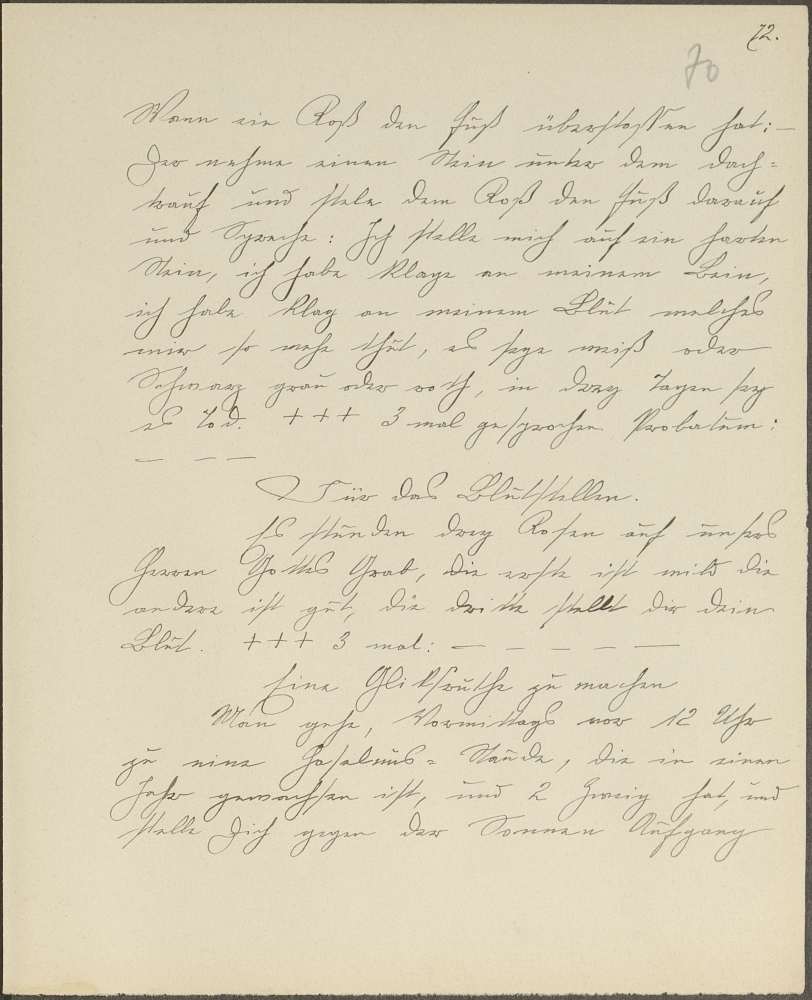 72.
70
Wann ein Roß den Fuß überstossen hat: —
Der nehme einen Stein unter dem Dach=
trauf und stele dem Roß den Fuß darauf
und Spreche: Ich stelle mich auf ein harten
Stein, ich habe Klage an meinem Bein,
ich habe Klag an meinem Blut welches
mir so wehe thut, es seye weiß oder
Schwarz grau oder roth, in drey Tagen sey
es Tod. +++ 3 mal gesprochen Probatum:
— — —
Für das Blutstellen.
Es stunden drey Rosen auf unsers
Herren Gottes Grab, die erste ist mild die
andere ist gut, die dritte stellt dir dein
Blut. +++ 3 mal: — — — — — —
Eine Gliksruthe zu machen
Man gehe, Vormittags vor 12 Uhr
zu eine Haselnus= Staude, die in einen
Jahr gewachsen ist, und 2 Zweig hat, und
stelle Dich gegen der Sonnen Aufgang